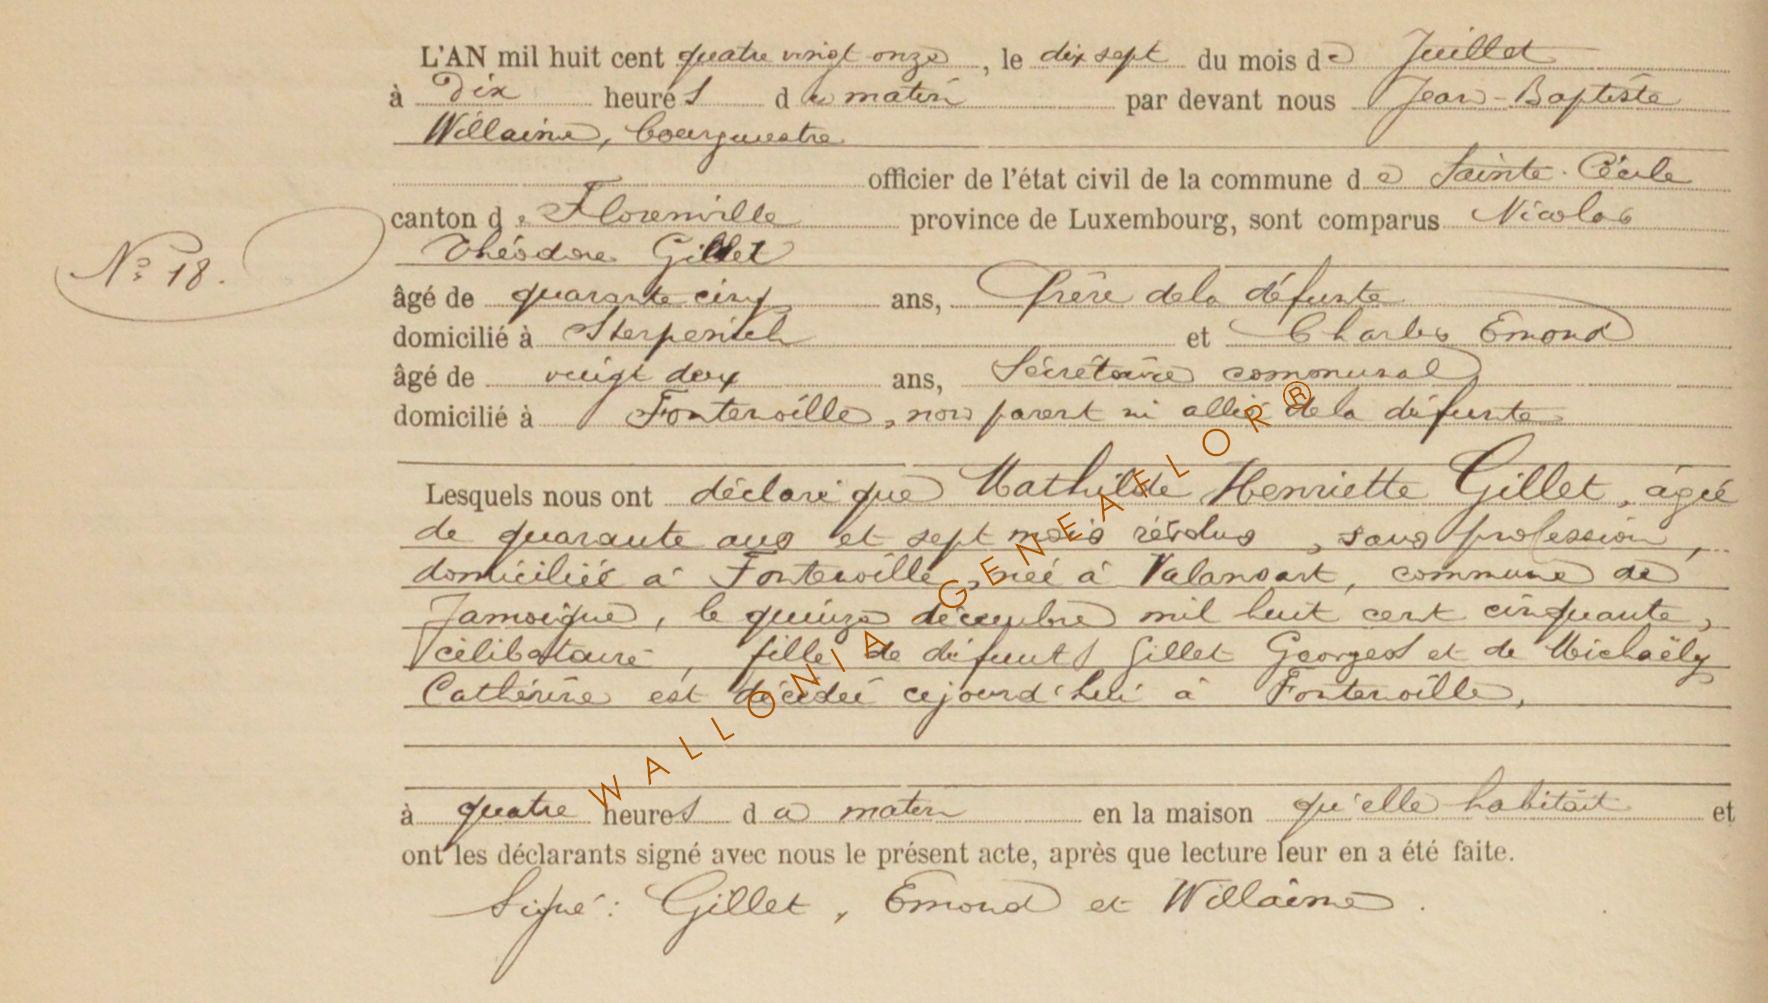 L'AN mil huit cent quatre vingt onze, le dix sept du mois de Juillet
à Dix heures du matin par devant nous Jean-Baptiste
Willaime, bourgmestre
officier de l'état civil de la commune de Sainte-Cécile
canton de Florenville province de Luxembourg, sont comparus Nicolas
Théodore Gillet
N° 18.
âgé de quarante cinq ans, frère de la défunte
domicilié à Sterpenich et Charles Emond
âgé de vingt deux ans, Secrétaire communal
domicilié à Fontenoille, non parent ni allié de la défunte
Lesquels nous ont déclaré que Mathilde Henriette Gillet, âgée
de quarante ans et sept mois révolus, sans profession,
domiciliée à Fontenoille, née à Valansart, commune de
Jamoigne, le quinze décembre mil huit cent cinquante,
célibataire, fille de défunts Gillet Georges et de Michaëly
Cathérine est décédée cejourd'hui à Fontenoille,
à quatre heures du matin en la maison qu'elle habitait et
ont les déclarants signé avec nous le présent acte, après que lecture leur en a été faite.
Signé: Gillet, Emond et Willaime.
WALLONIA GENEAFLOR®